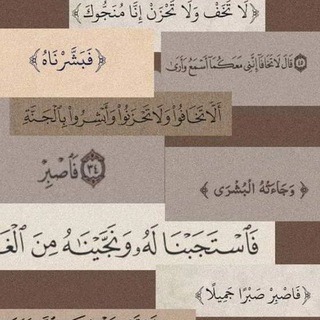 ﴿لَا تَخَفْ وَلَا تَحْزَنْ إِنَّا مُنَجُّوكَ﴾
﴿فَبَشَّرْنَاهُ﴾
٤٥ قَالَ لَا تَخَافَا إِنَّنِي مَعَكُمَا أَسْمَعُ وَأَرَى
أَلَّا تَخَافُوا۟ وَلَا تَحْزَنُوا۟ وَأَبْشِرُوا۟ بِٱلْجَنَّةِ
٣٤ فَٱصْبِرْ
﴿وَجَاءَتْهُ الْبُشْرَى﴾
فَٱسْتَجَبْنَا لَهُۥ وَنَجَّيْنَٰهُ مِنَ ٱلْغَ
﴿فَاصْبِرْ صَبْرًا جَمِيلًا﴾